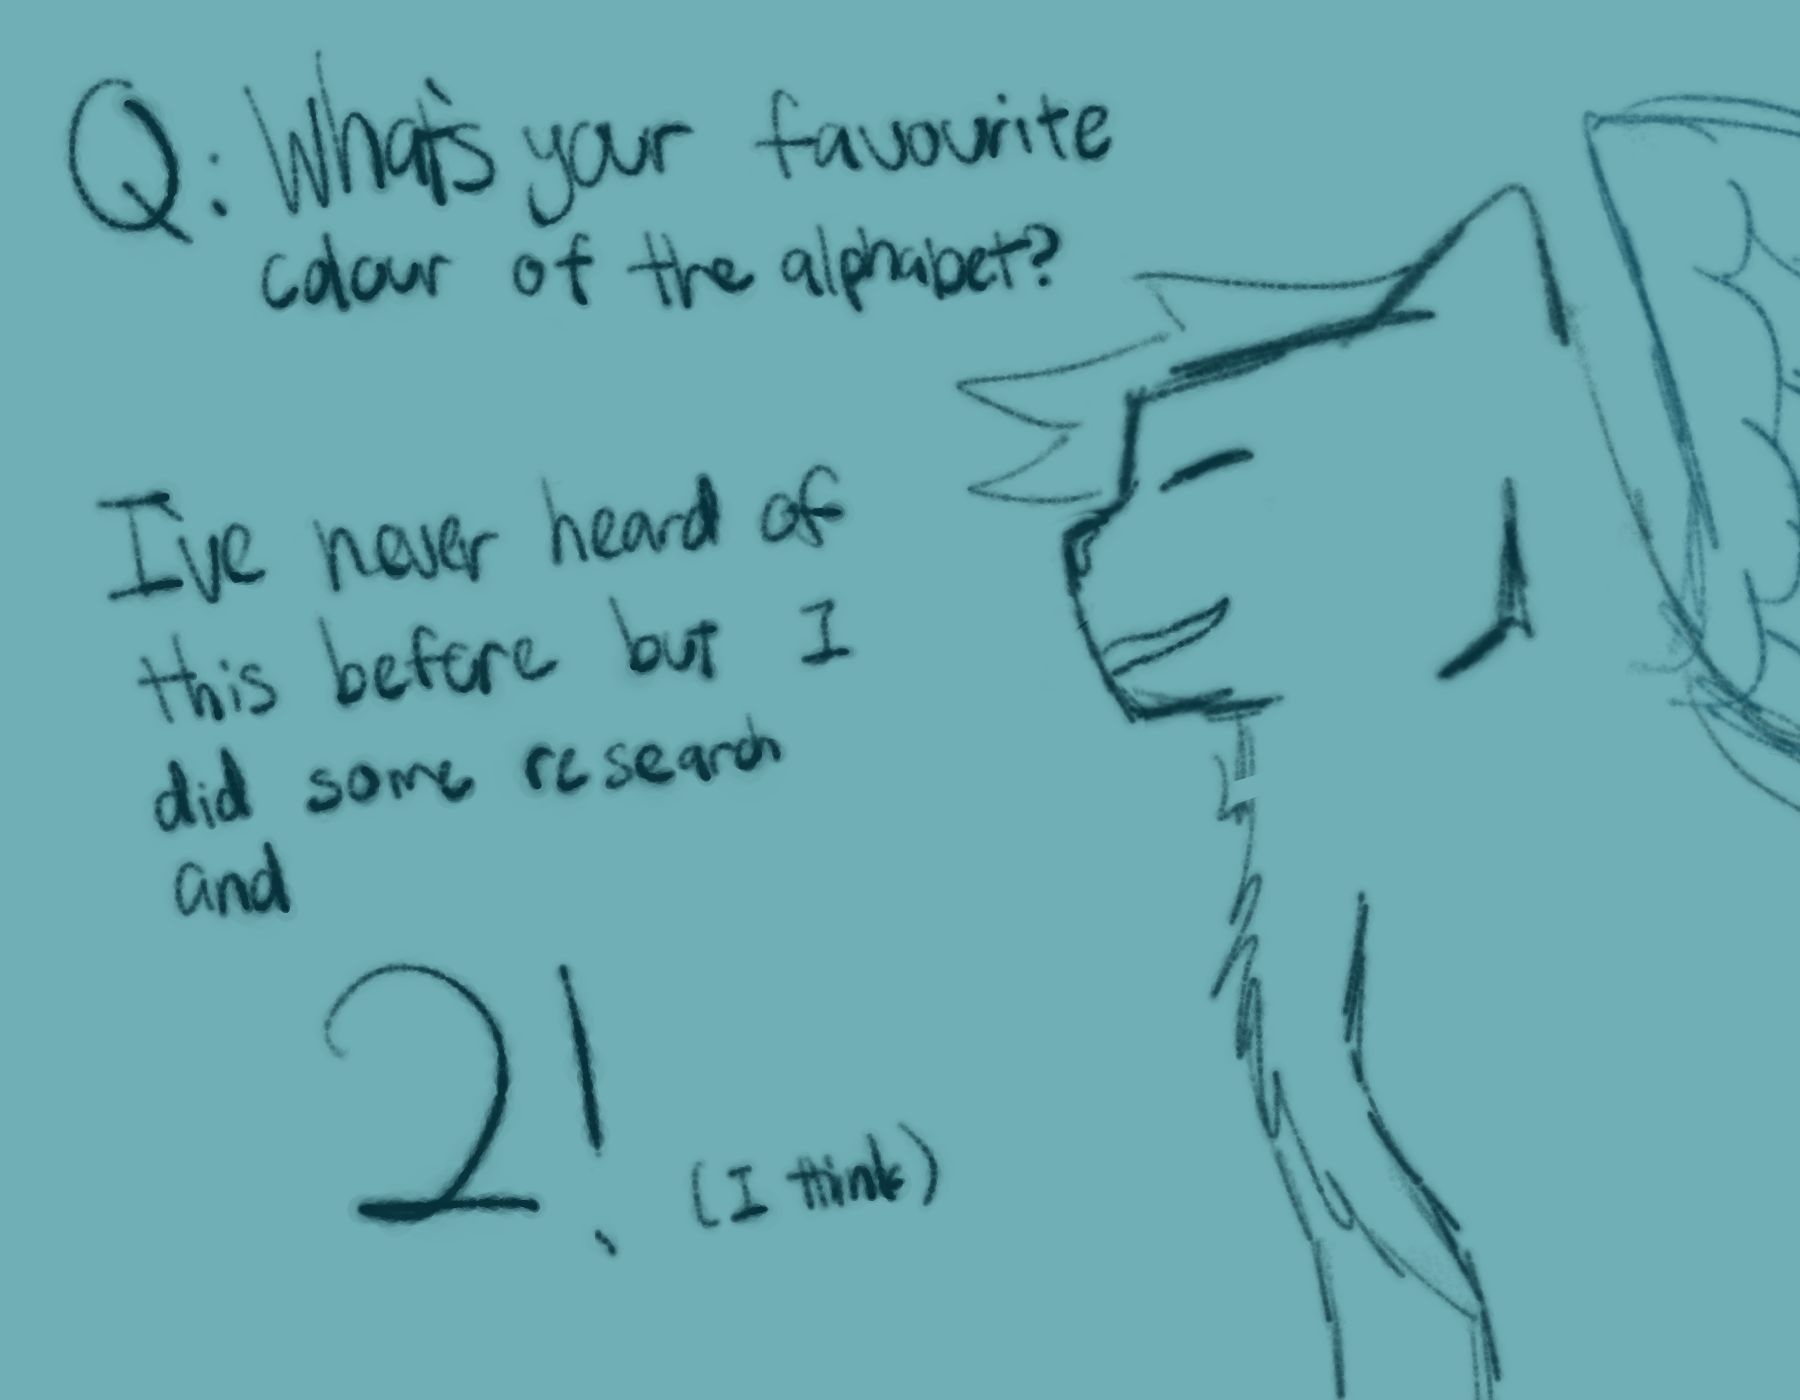 Q: What's your favourite
colour of the alphabet?
I've never heard of
this before but I
did some research
and
2!
(I think)